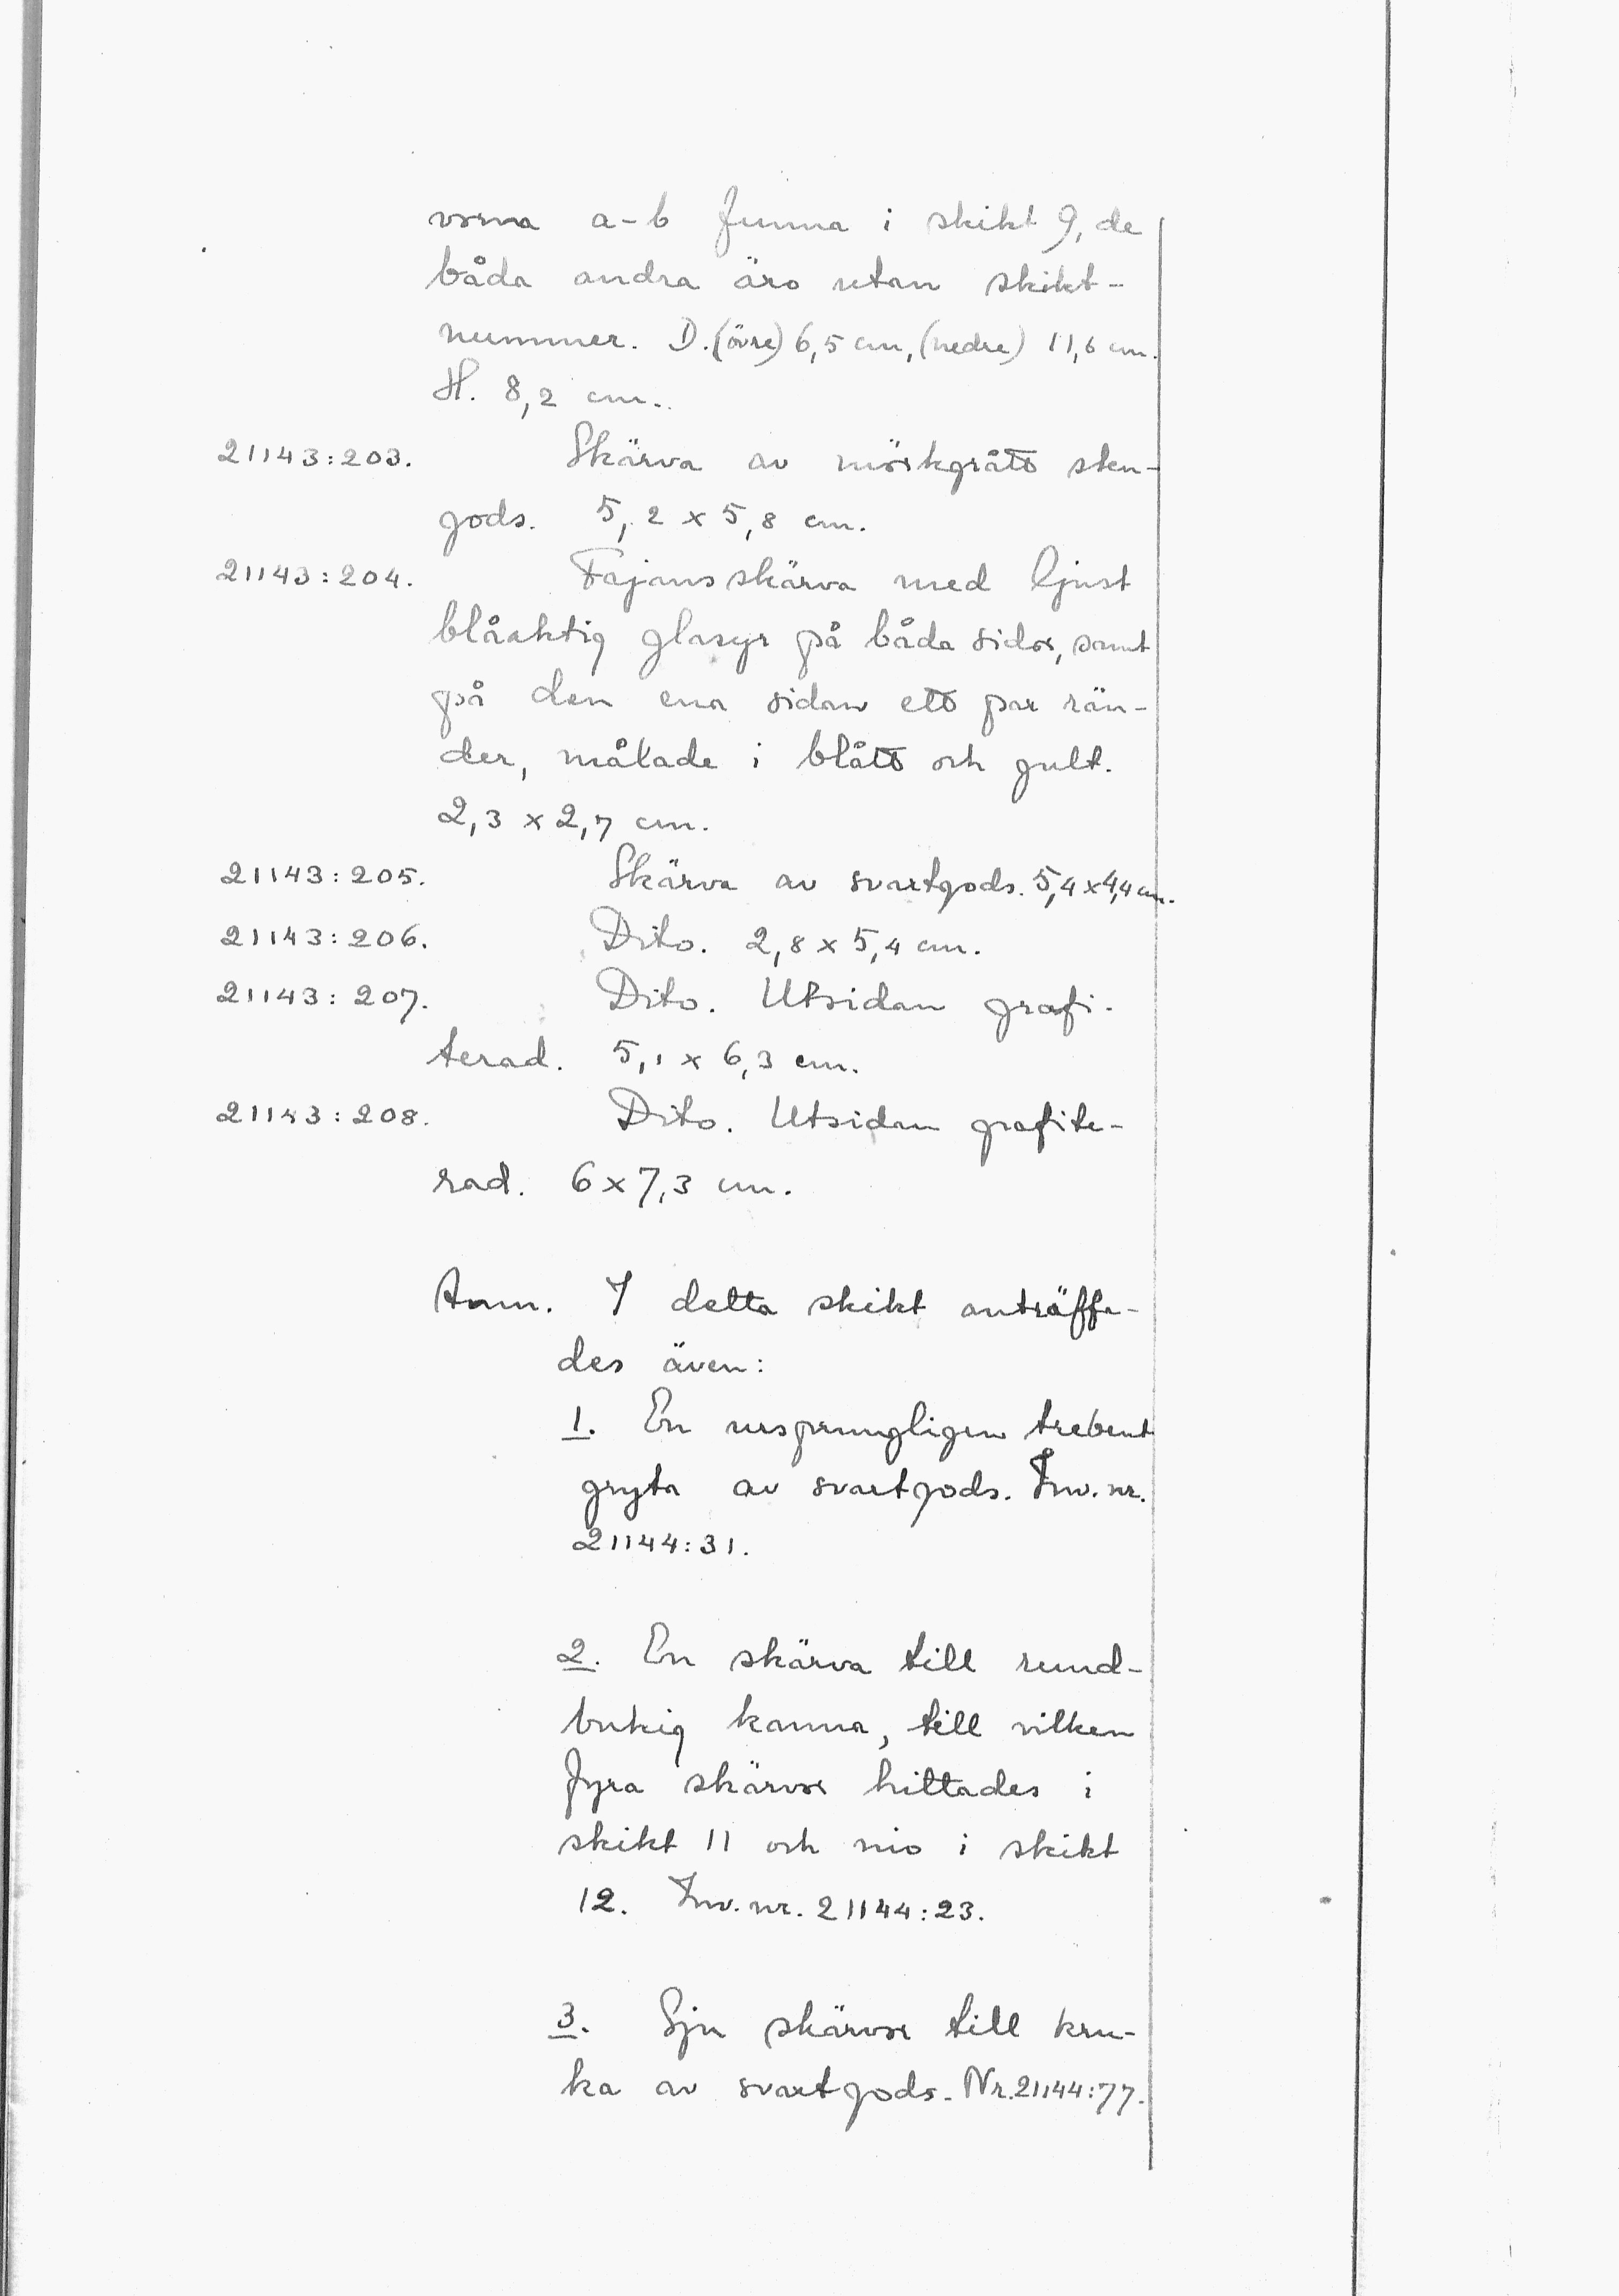 vorna a-b funna i skikt 9, de
båda andra äro utan skikt-
nummer. D. (övre) 6,5 cm, (nedre) 11,6 cm.
H. 8,2 cm.
21143:203. Skärva av mörkgrått sten-
gods. 5,2 x 5,8 cm.
21143:204. Fajansskärva med ljust
blåaktig glasyr på båda sidor, samt
på den ena sidan ett par rän-
der, målade i blått och gult.
2,3 x 2,7 cm.
21143:205. Skärva av svartgods. 5,4 x 4,4 cm.
21143:206. Dito. 2,8 x 5,4 cm.
21143:207. Dito. Utsidan grafi-
terad. 5,1 x 6,3 cm.
21143:208. Dito. Utsidan grafite-
rad. 6 x 7,3 cm.
Anm. I detta skikt anträffa-
des även:
1. En ursprungligen trebent
gryta av svartgods. Inv. nr.
21144:31.
2. En skärva till rund-
bukig kanna, till vilken
fyra skärvor hittades i
skikt 11 och nio i skikt
12. Inv. nr. 21144:23.
3. Sju skärvor till kru-
ka av svartgods. Nr. 21144:77.